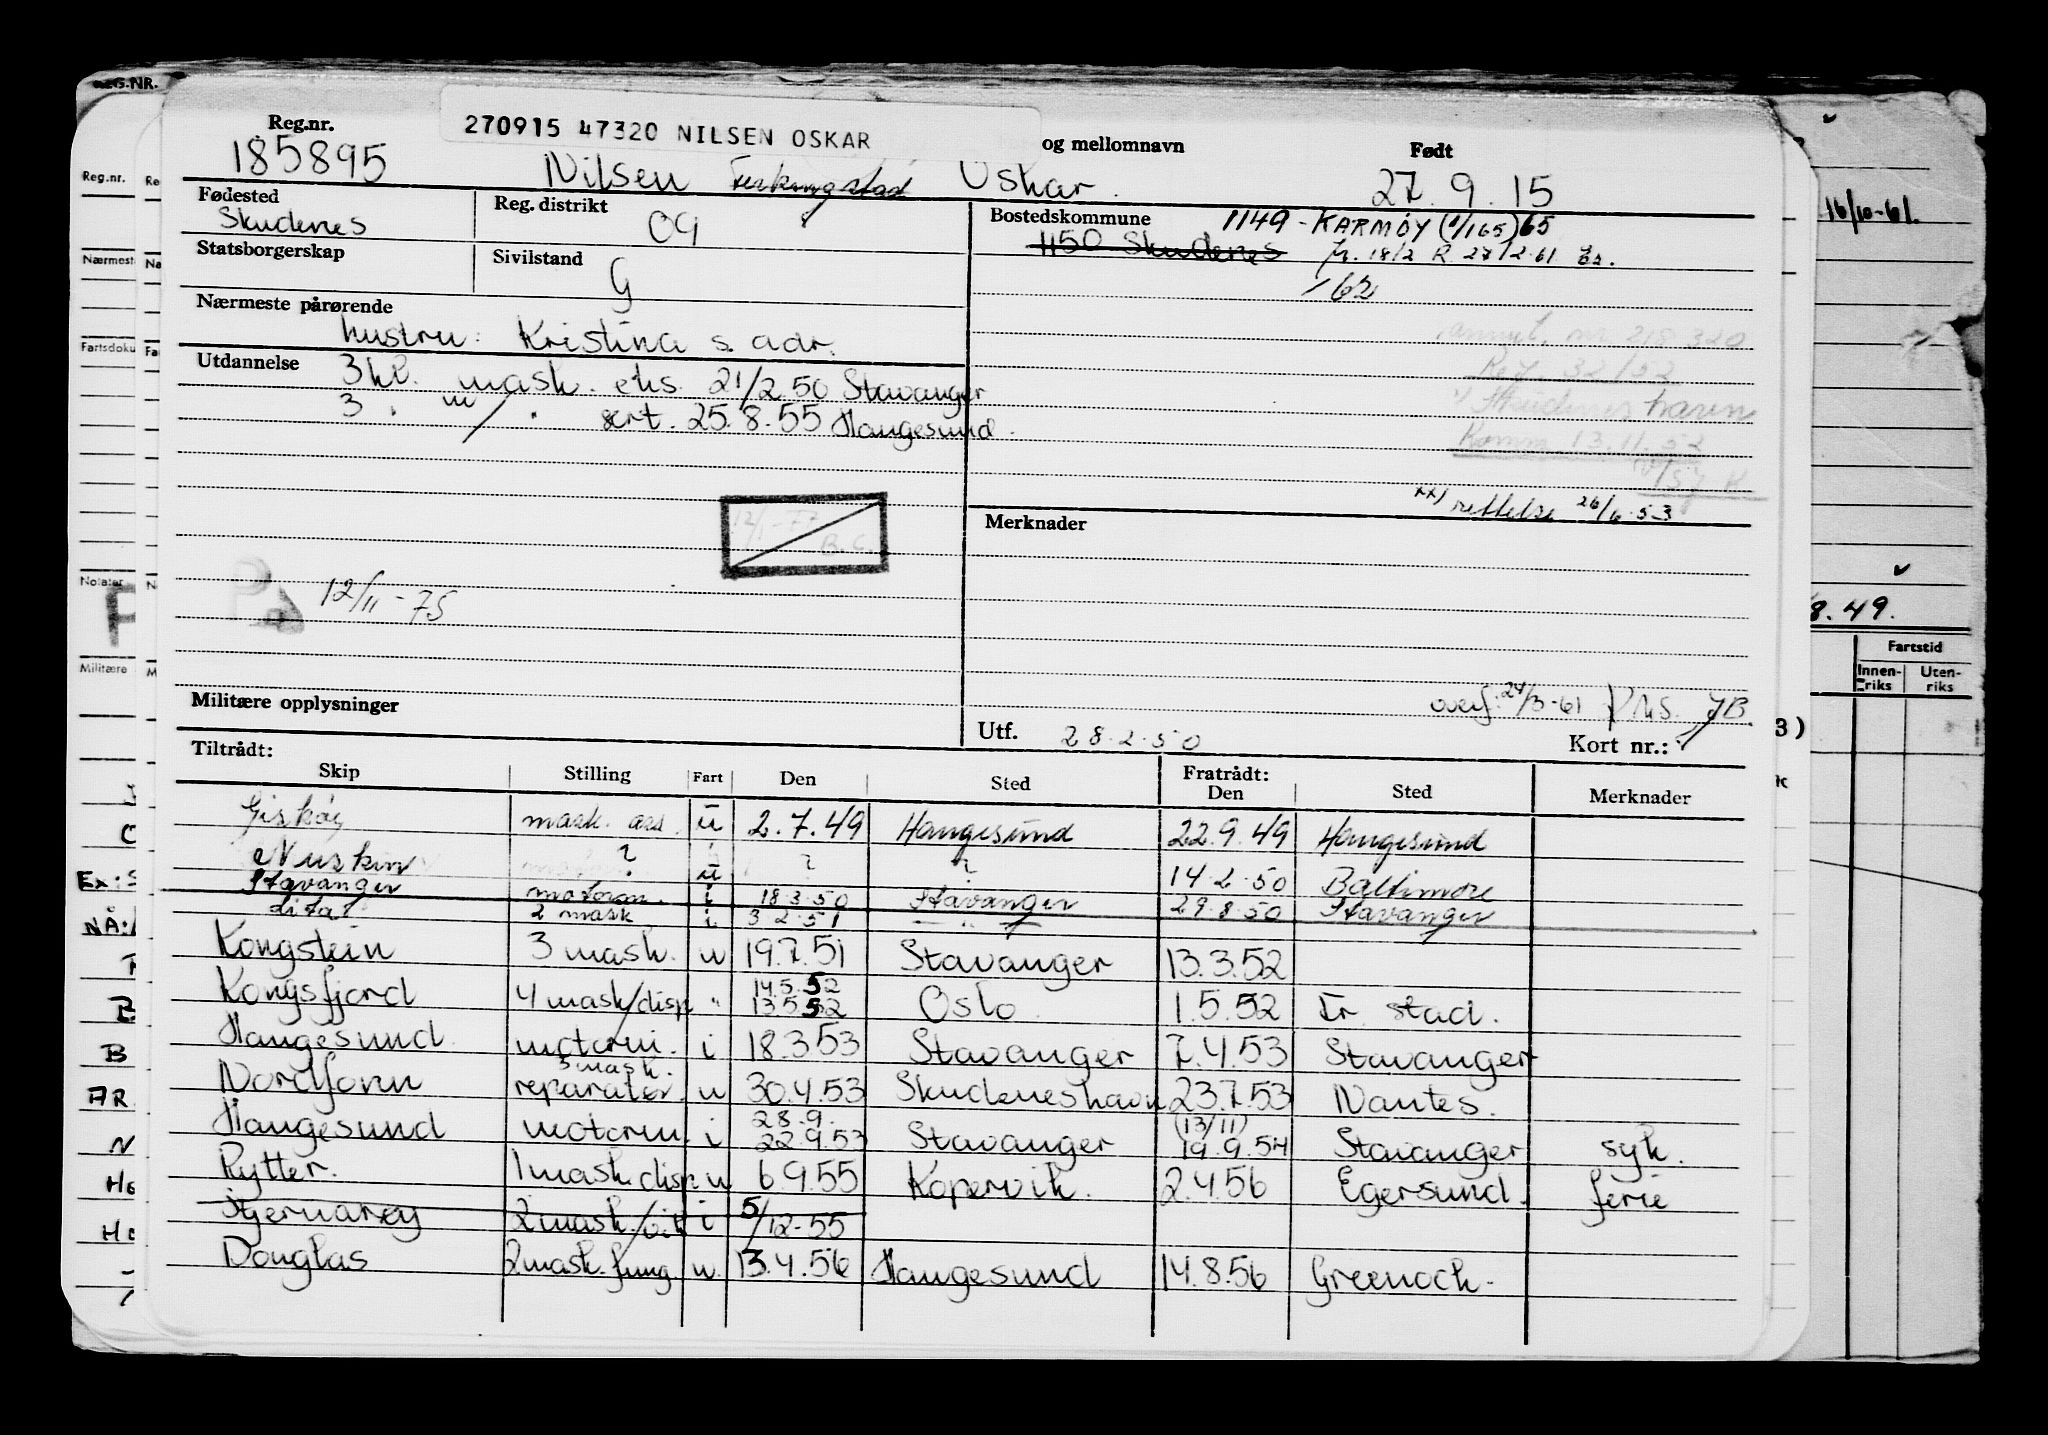 270915 47320 NILSEN OSKAR
Reg.nr. og mellomnavn Født
185895 Nilsen Oskar. 27.9.15
Fødested Reg. distrikt Bostedskommune 1149 - KARMØY (1/165) 65
Skudenes OG 1150 Skudenes
Statsborgerskap Sivilstand
G
/62
Nærmeste pårørende
hustru: Kristina s. adr.
Utdannelse 3 kl. mask. eks. 21/2.50 Stavanger
3 " m/ " sert. 25.8.55 Haugesund.
xx) rettelse 26/6.53
Merknader
12/1-77
B.C.
12/11-75
Militære opplysninger
overf. 24/3-61 JB.
Utf. 28.2.50 Kort nr.: 1
Tiltrådt: Fratrådt:
Skip Stilling Fart Den Sted Den Sted Merknader
Giskøy mask. ass. u 2.7.49 Haugesund 22.9.49 Haugesund
? u ? ? 14.2.50 Baltimore
Stavanger motorm. i 18.3.50 Stavanger 29.8.50 Stavanger
2 mask i 3.2.51 — " —
Kongstein 3 mask. u 19.7.51 Stavanger 13.3.52
14.5.52
Kongsfjord 4 mask/disp " 13.5.52 Oslo. 1.5.52 Fr. stad.
Haugesund. motorm. i 18.3.53 Stavanger 7.4.53 Stavanger
3 mask.
Nordfonn reparatør. u 30.4.53 Skudeneshavn 23.7.53 Nantes.
28.9. (13/11)
Haugesund motorm. i 22.9.53 Stavanger 19.9.54 Stavanger syk.
Rytter. 1 mask. disp u 6.9.55 Kopervik. 2.4.56 Egersund. ferie
Stjernarøy 2 mask./vik i 5/12-55
Douglas 2 mask. fung. u. 13.4.56 Haugesund 14.8.56 Greenock.
REG.NR.
Reg.nr.
Nærmest
Fartsdoku
Notater
Militære
16/10-61.
8.49.
Fartstid
Innenriks Utenriks
3)